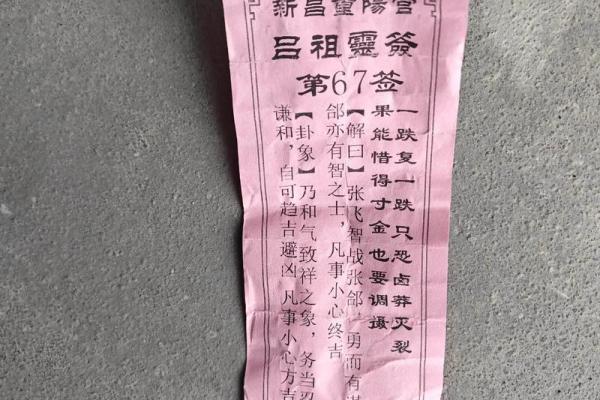 新昌重陽宫
吕祖靈簽
第67签
一跌复一跌只恐卤莽灭裂
果能惜得寸金也要调摄
【解曰】张飞智战张郃，勇而有谋
郃亦有智之士，凡事小心终吉
【卦象】乃和气致祥之象，务当忍
谦和，自可趋吉避凶凡事小心方吉